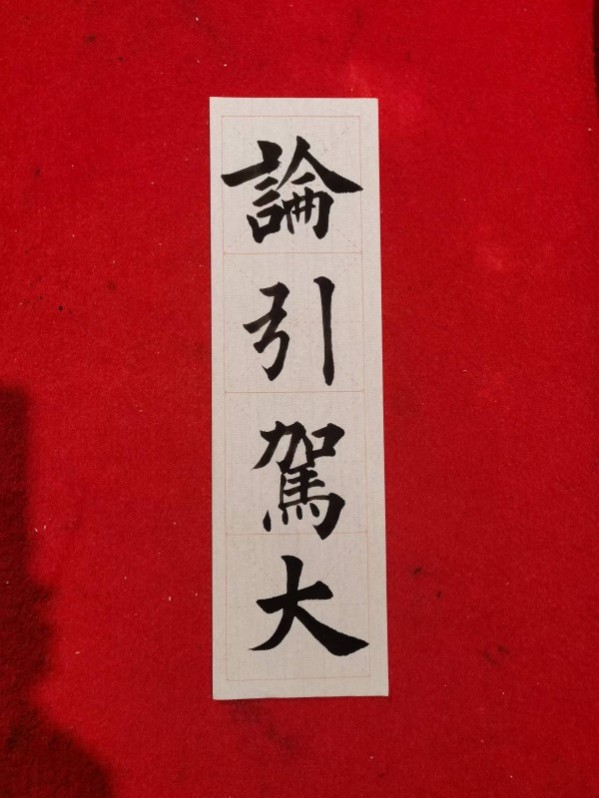 論引駕大